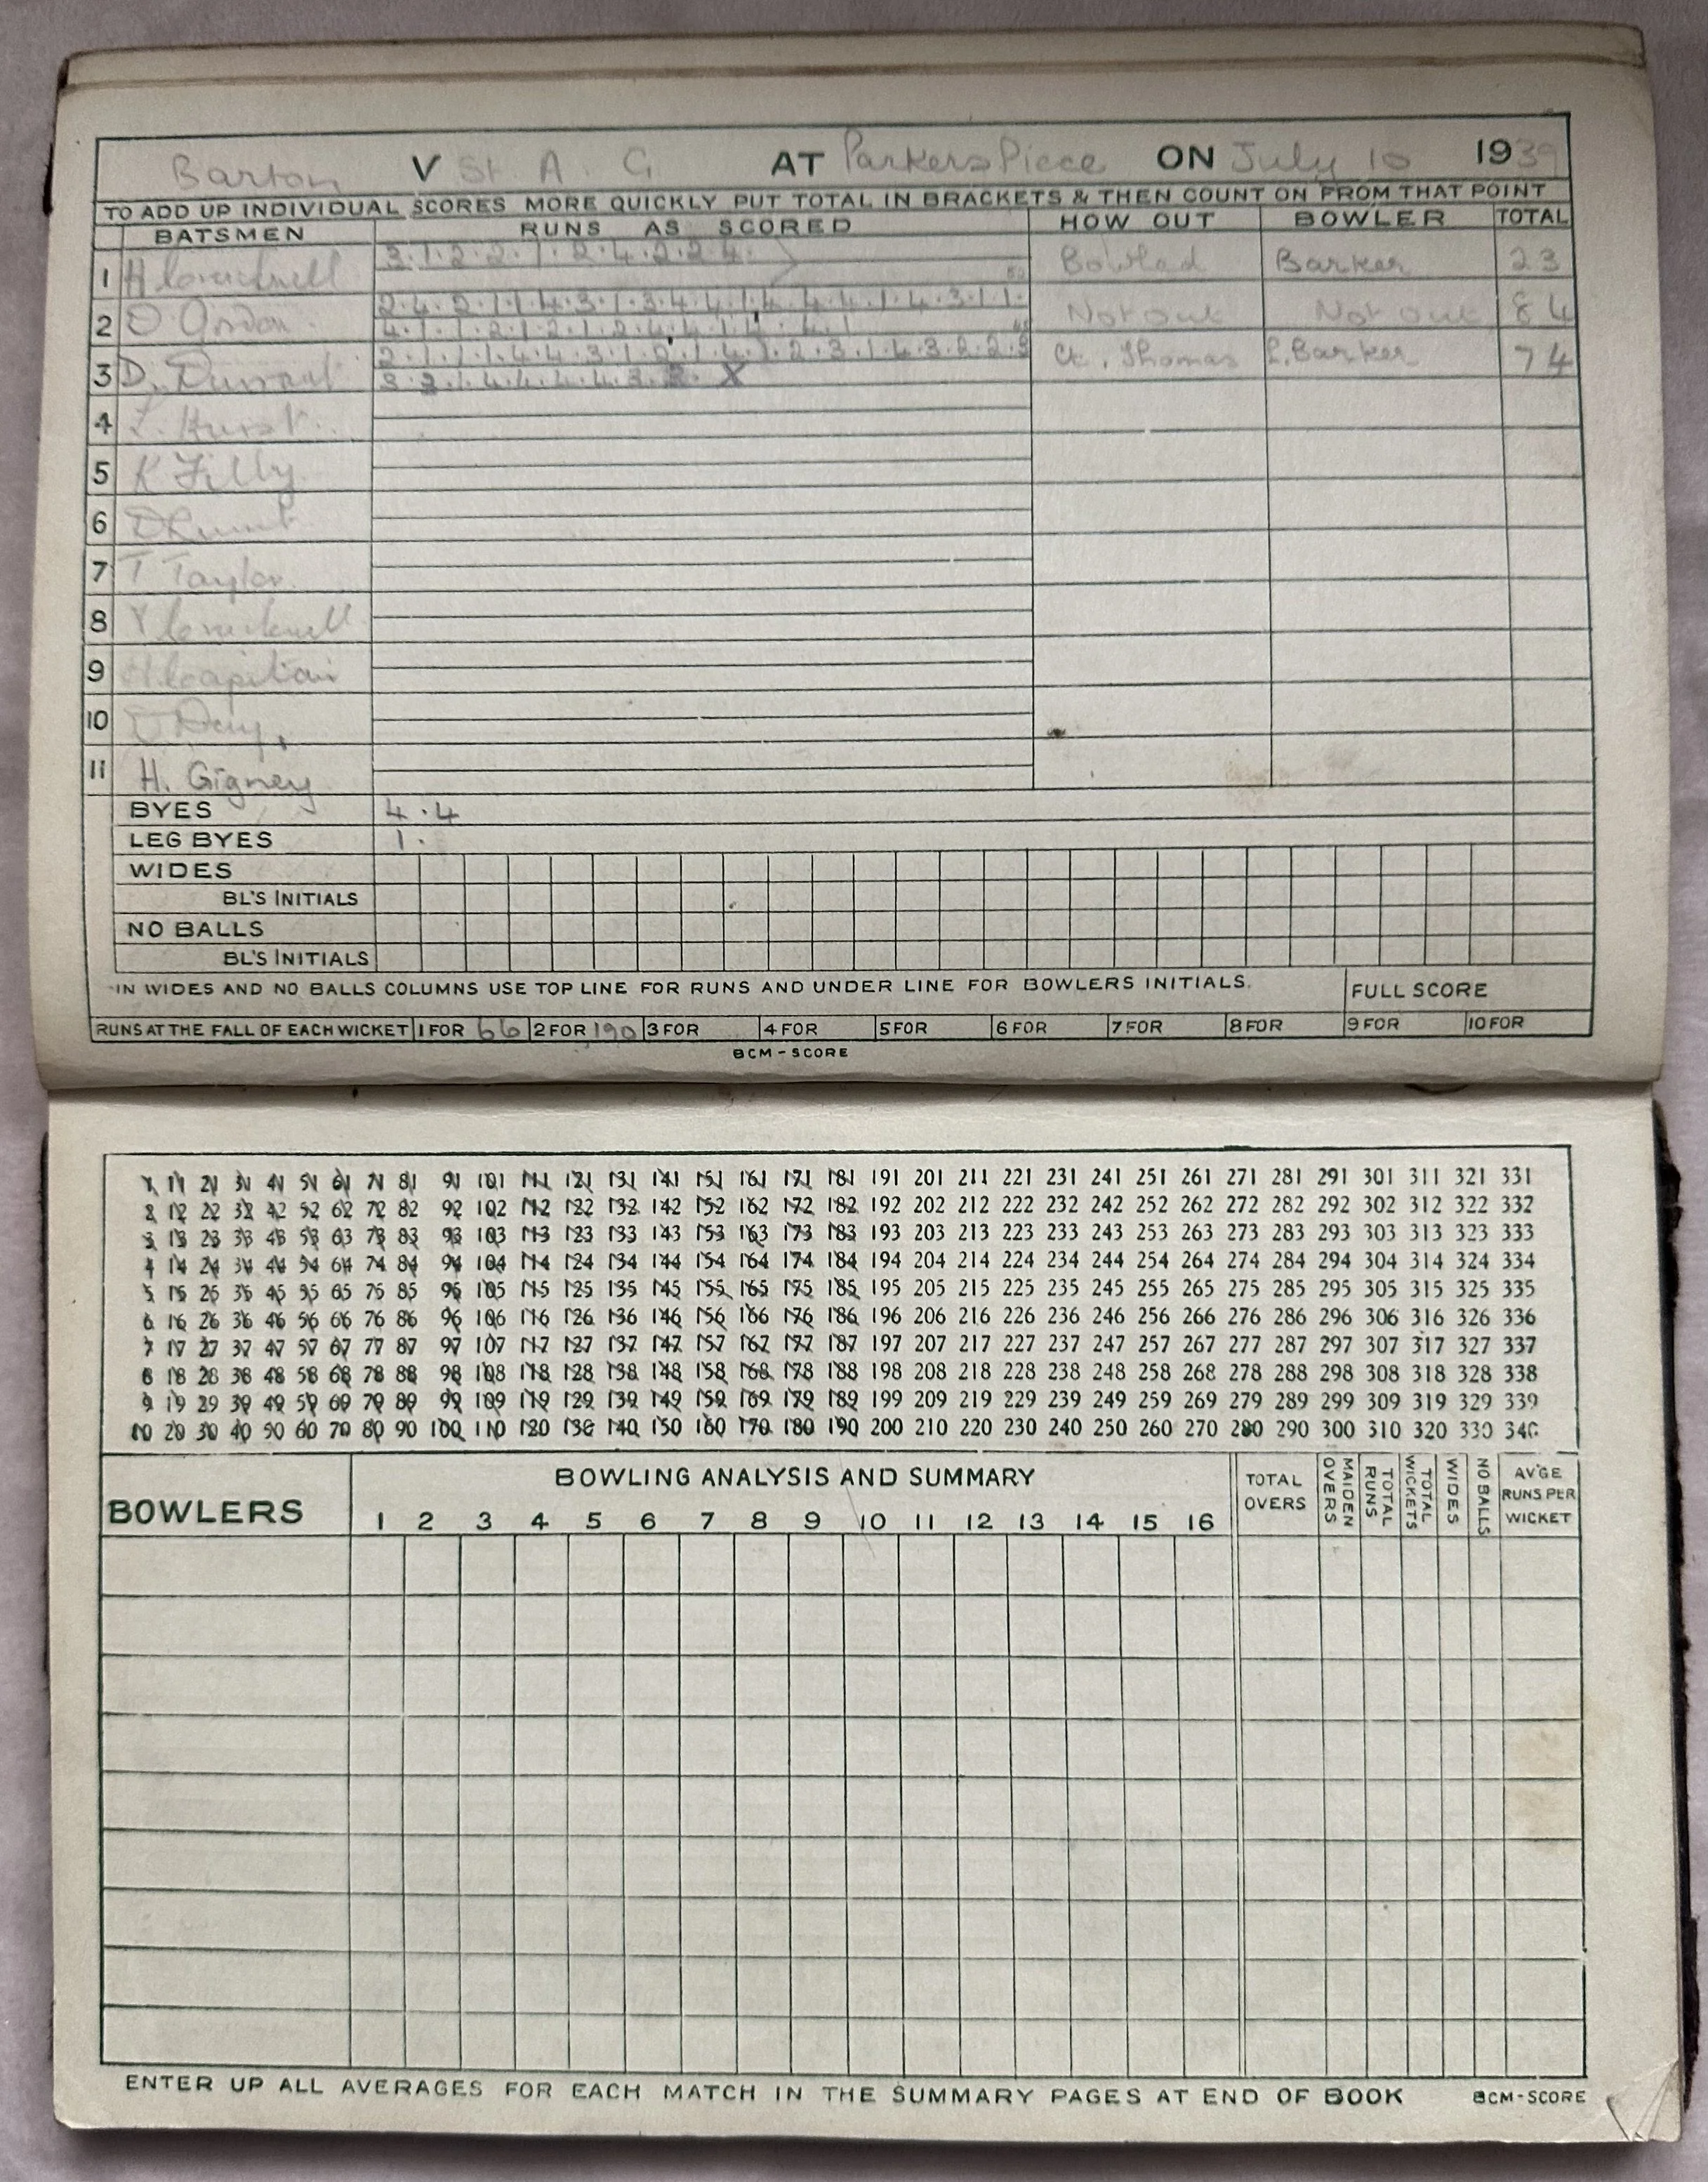 Barton V St. A. G AT Parkers Piece ON July 10 1939
TO ADD UP INDIVIDUAL SCORES MORE QUICKLY PUT TOTAL IN BRACKETS & THEN COUNT ON FROM THAT POINT
BATSMEN RUNS AS SCORED HOW OUT BOWLER TOTAL
1 H Cracknell 3.1.2.2.1.2.4.2.2.4. Bowled Barker 23
2 Not out Not out 84
3 D. Ct. Thomas L. Barker 74
4
5 K Filly
6
7 T Taylor
8 Y Cracknell
9
10 Day,
11 H. Gigney
BYES 4.4
LEG BYES 1.
WIDES
BL'S INITIALS
NO BALLS
BL'S INITIALS
IN WIDES AND NO BALLS COLUMNS USE TOP LINE FOR RUNS AND UNDER LINE FOR BOWLERS INITIALS. FULL SCORE
RUNS AT THE FALL OF EACH WICKET 1 FOR 66 2 FOR 190 3 FOR 4 FOR 5 FOR 6 FOR 7 FOR 8 FOR 9 FOR 10 FOR
BCM-SCORE
1 11 21 31 41 51 61 71 81 91 101 111 121 131 141 151 161 171 181 191 201 211 221 231 241 251 261 271 281 291 301 311 321 331
2 12 22 32 42 52 62 72 82 92 102 112 122 132 142 152 162 172 182 192 202 212 222 232 242 252 262 272 282 292 302 312 322 332
3 13 23 33 43 53 63 73 83 93 103 113 123 133 143 153 163 173 183 193 203 213 223 233 243 253 263 273 283 293 303 313 323 333
4 14 24 34 44 54 64 74 84 94 104 114 124 134 144 154 164 174 184 194 204 214 224 234 244 254 264 274 284 294 304 314 324 334
5 15 25 35 45 55 65 75 85 95 105 115 125 135 145 155 165 175 185 195 205 215 225 235 245 255 265 275 285 295 305 315 325 335
6 16 26 36 46 56 66 76 86 96 106 116 126 136 146 156 166 176 186 196 206 216 226 236 246 256 266 276 286 296 306 316 326 336
7 17 27 37 47 57 67 77 87 97 107 117 127 137 147 157 167 177 187 197 207 217 227 237 247 257 267 277 287 297 307 317 327 337
8 18 28 38 48 58 68 78 88 98 108 118 128 138 148 158 168 178 188 198 208 218 228 238 248 258 268 278 288 298 308 318 328 338
9 19 29 39 49 59 69 79 89 99 109 119 129 139 149 159 169 179 189 199 209 219 229 239 249 259 269 279 289 299 309 319 329 339
10 20 30 40 50 60 70 80 90 100 110 120 130 140 150 160 170 180 190 200 210 220 230 240 250 260 270 280 290 300 310 320 330 340
BOWLERS BOWLING ANALYSIS AND SUMMARY TOTAL OVERS MAIDEN OVERS TOTAL RUNS TOTAL WICKETS WIDES NO BALLS AV'GE RUNS PER WICKET
1 2 3 4 5 6 7 8 9 10 11 12 13 14 15 16
ENTER UP ALL AVERAGES FOR EACH MATCH IN THE SUMMARY PAGES AT END OF BOOK BCM-SCORE